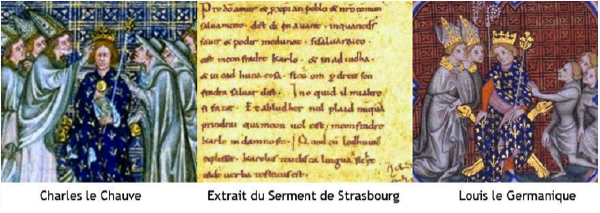 Pro dõ amur & p xpian poblo & nro comun
saluament . dist di in auant . inquant ds
sauir & podir medunat . sisaluaraieo
cist meon fradre Karlo . & in ad iudha
& in cad huna cosa . sicũ om p dreit son
fradra saluar dist . Ino quid il mialtre
si fazet . Et abludher nul plaid nũquã
prindrai qui meon uol cist . meonfradre
Karle in damno sit . Quod cũ lodhuuic
explesset . Karolus teudisca lingua
eade uerba testatus est .
Charles le Chauve
Extrait du Serment de Strasbourg
Louis le Germanique